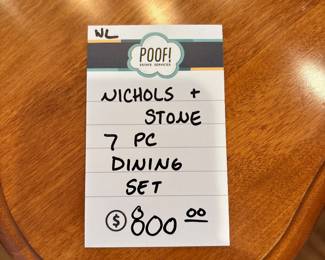 NL
POOF!
ESTATE SERVICES
NICHOLS +
STONE
7 PC
DINING
SET
$ 800 00